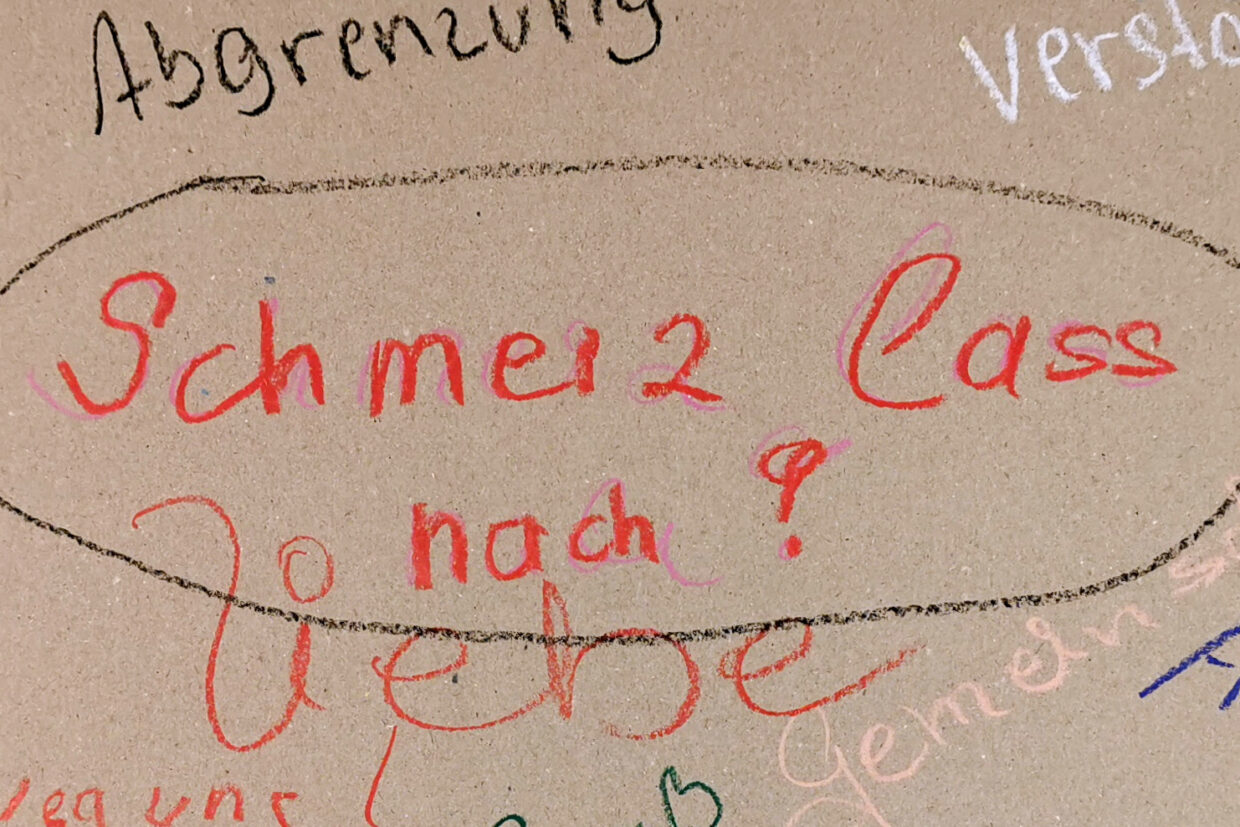 Abgrenzung
Versta
Schmerz lass
nach?
Liebe
Gemeinsa